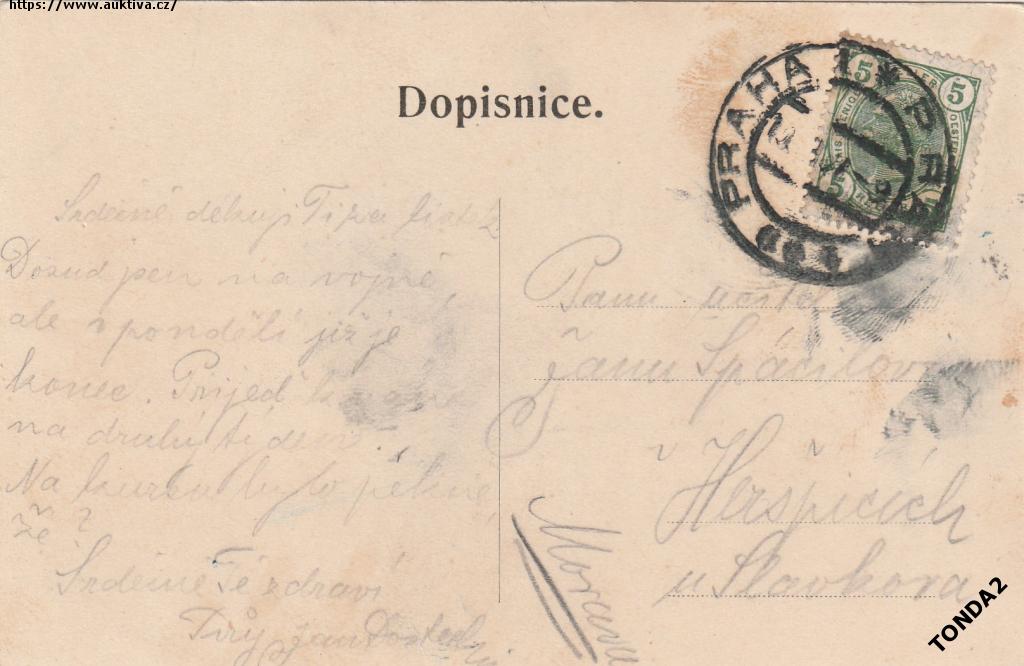 https://www.auktiva.cz/
Dopisnice.
PRAHA 1 * PRAG 1
5 5
Srdečně děkuji Ti za lístek
Dosud jsem na vojně,
ale v pondělí již je
konec. Přijeď
na druhý týden.
Na kurzu bylo pěkně
že?
Srdečně Tě zdraví
Tvůj Jan
Panu
Janu Spáčilovi
v Heršpicích
u Slavkova
Morava
TONDA2